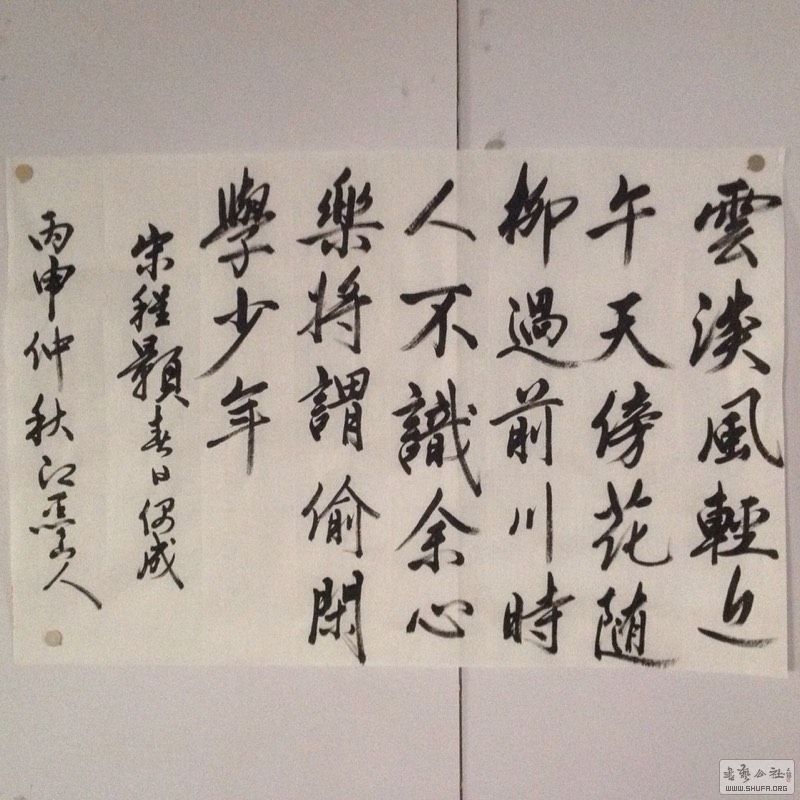 雲淡風輕近
午天傍花随
柳過前川時
人不識余心
樂將謂偷閑
學少年
宋程顥春日偶成
丙申仲秋江山人
WWW.SHUFA.ORG